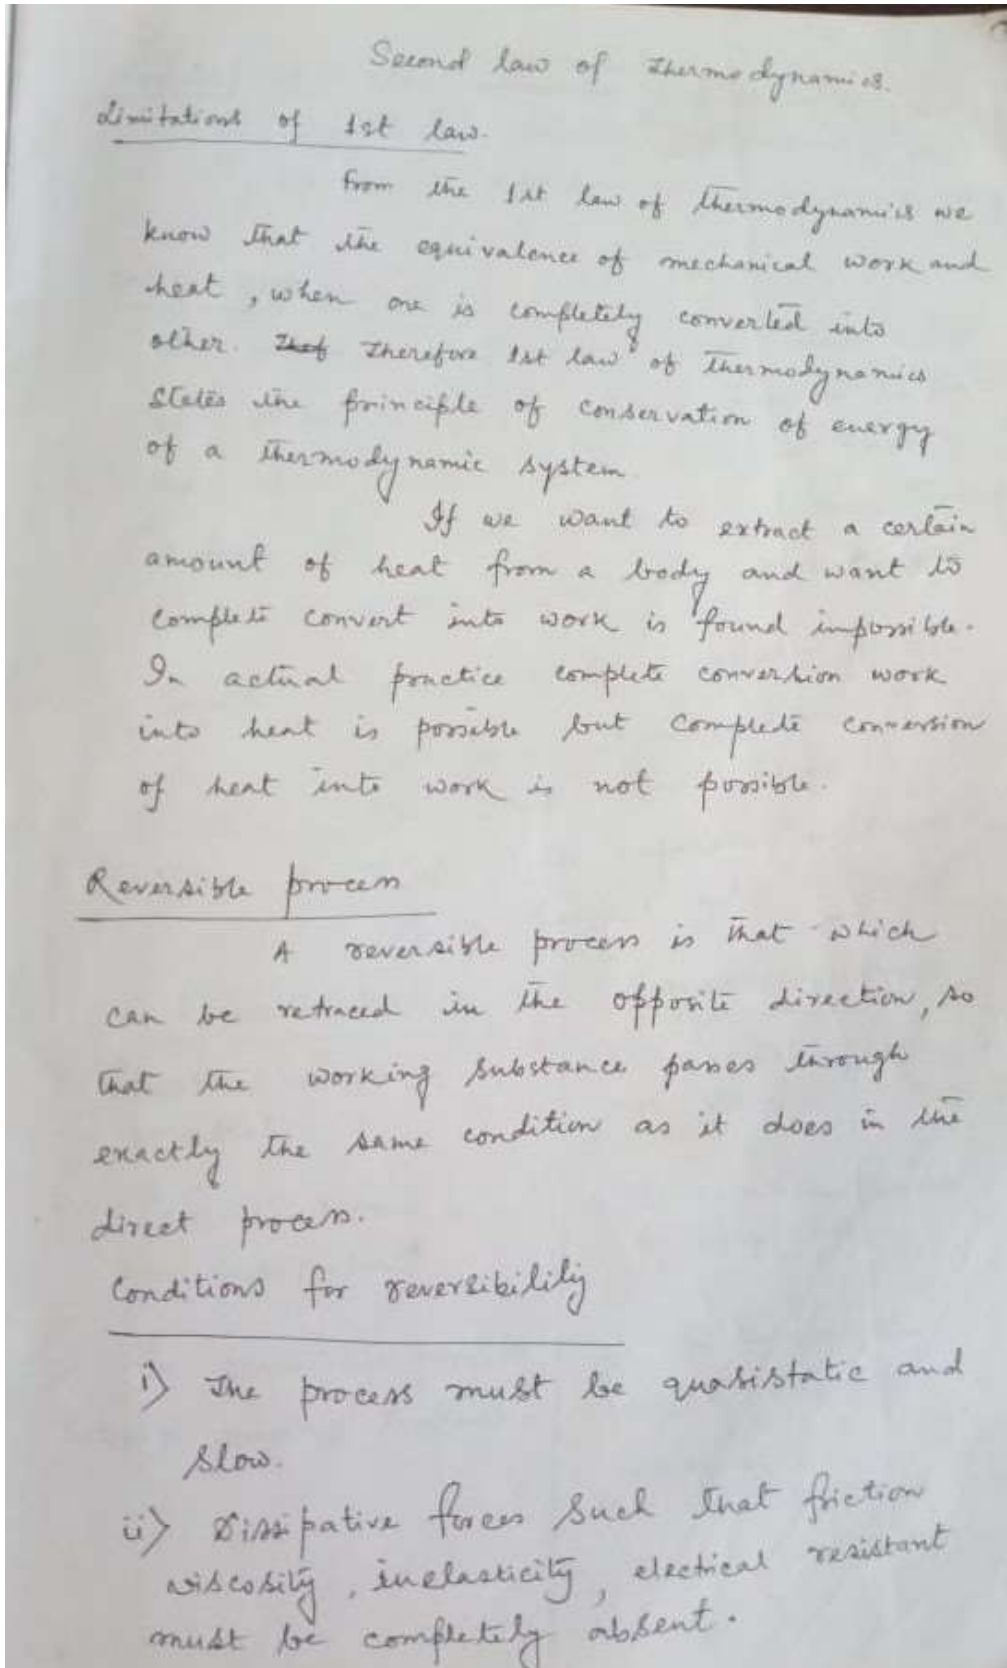 Second law of Thermodynamics.
Limitations of 1st law.
From the 1st law of thermodynamics we
know that the equivalence of mechanical work and
heat, when one is completely converted into
other. Therefore 1st law of thermodynamics
states the principle of conservation of energy
of a thermodynamic system
If we want to extract a certain
amount of heat from a body and want to
complete convert into work is found impossible.
In actual practice complete conversion work
into heat is possible but complete conversion
of heat into work is not possible.
Reversible process
A reversible process is that which
can be retraced in the opposite direction, so
that the working substance passes through
exactly the same condition as it does in the
direct process.
Conditions for reversibility
i) The process must be quasistatic and
slow.
ii) Dissipative forces such that friction
viscosity, inelasticity, electrical resistant
must be completely absent.